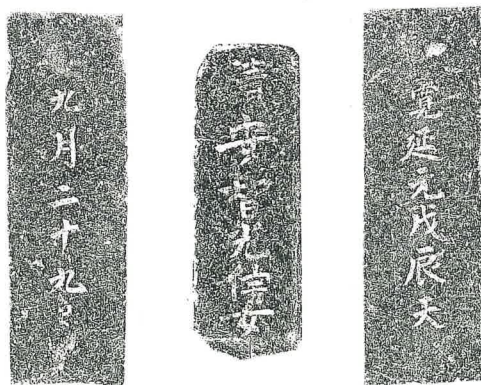 寛延元戊辰天
安智光信女
九月二十九日